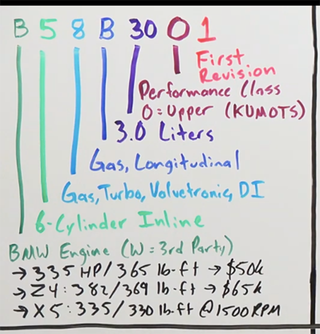 B 5 8 B 30 O 1
First
Revision
Performance Class
O=Upper (KUMOTS)
3.0 Liters
Gas, Longitudinal
Gas, Turbo, Valvetronic, DI
6-Cylinder Inline
BMW Engine (W=3rd Party)
→ 335 HP/365 lb·ft → $50k
→ Z4: 382/369 lb·ft → $65k
→ X5: 335/330 lb·ft @1500RPM